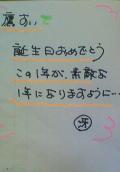 誕生日おめでとう
この1年が、素敵な
1年になりますように…